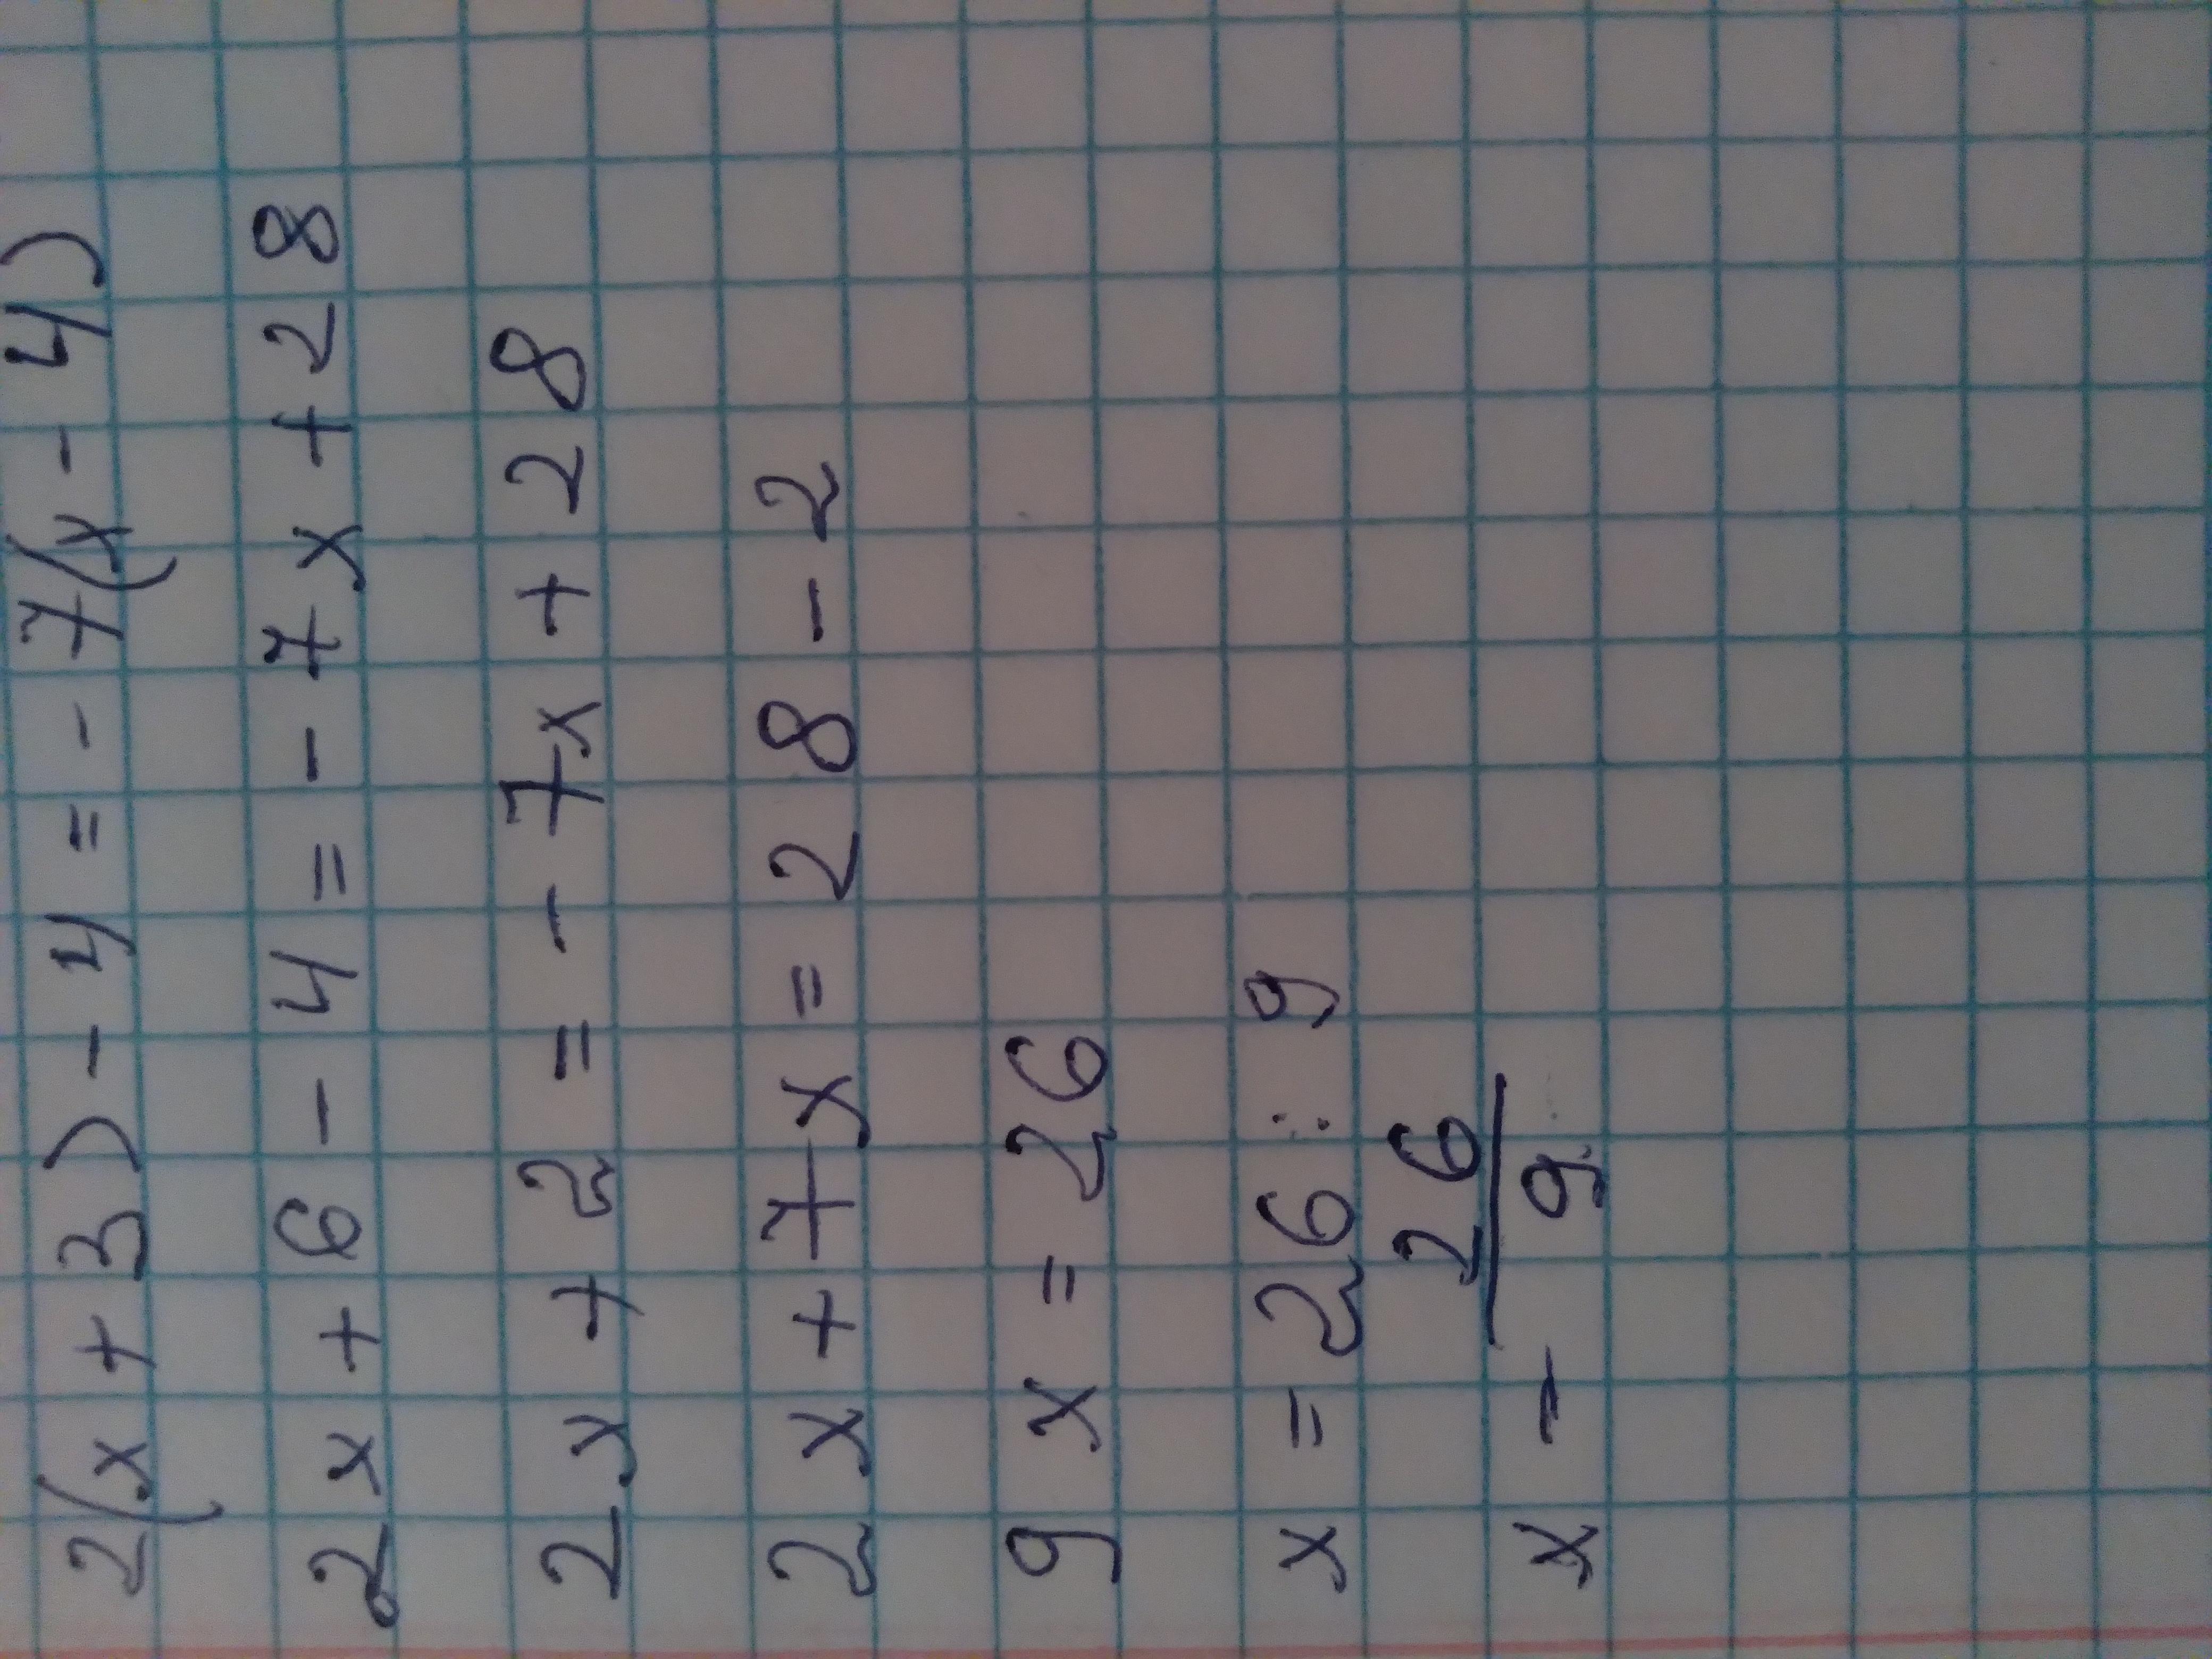 2(x+3)-4=-7(x-4)
2x+6-4=-7x+28
2x+2=-7x+28
2x+7x=28-2
9x=26
x=26:9
x - 26/9